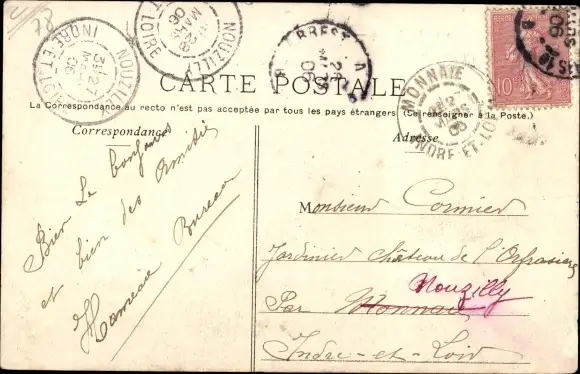 78
NOUZILLY
27
MARS
06
INDRE-ET-LOIRE
NOUZILLY
28
MARS
06
ET-LOIRE
BREST A
06
CARTE POSTALE
MONNAIE
MARS
06
INDRE-ET-LOIRE
10
PARIS
06
La Correspondance au recto n'est pas acceptée par tous les pays étrangers (Se renseigner à la Poste.)
Correspondance
Bien Le bonjour
et bien des Amitiés
Bureau
Adresse
Monsieur Cormier
Jardinier château de l'Orfrasière
Par Monnaie Nouzilly
Indre-et-Loir